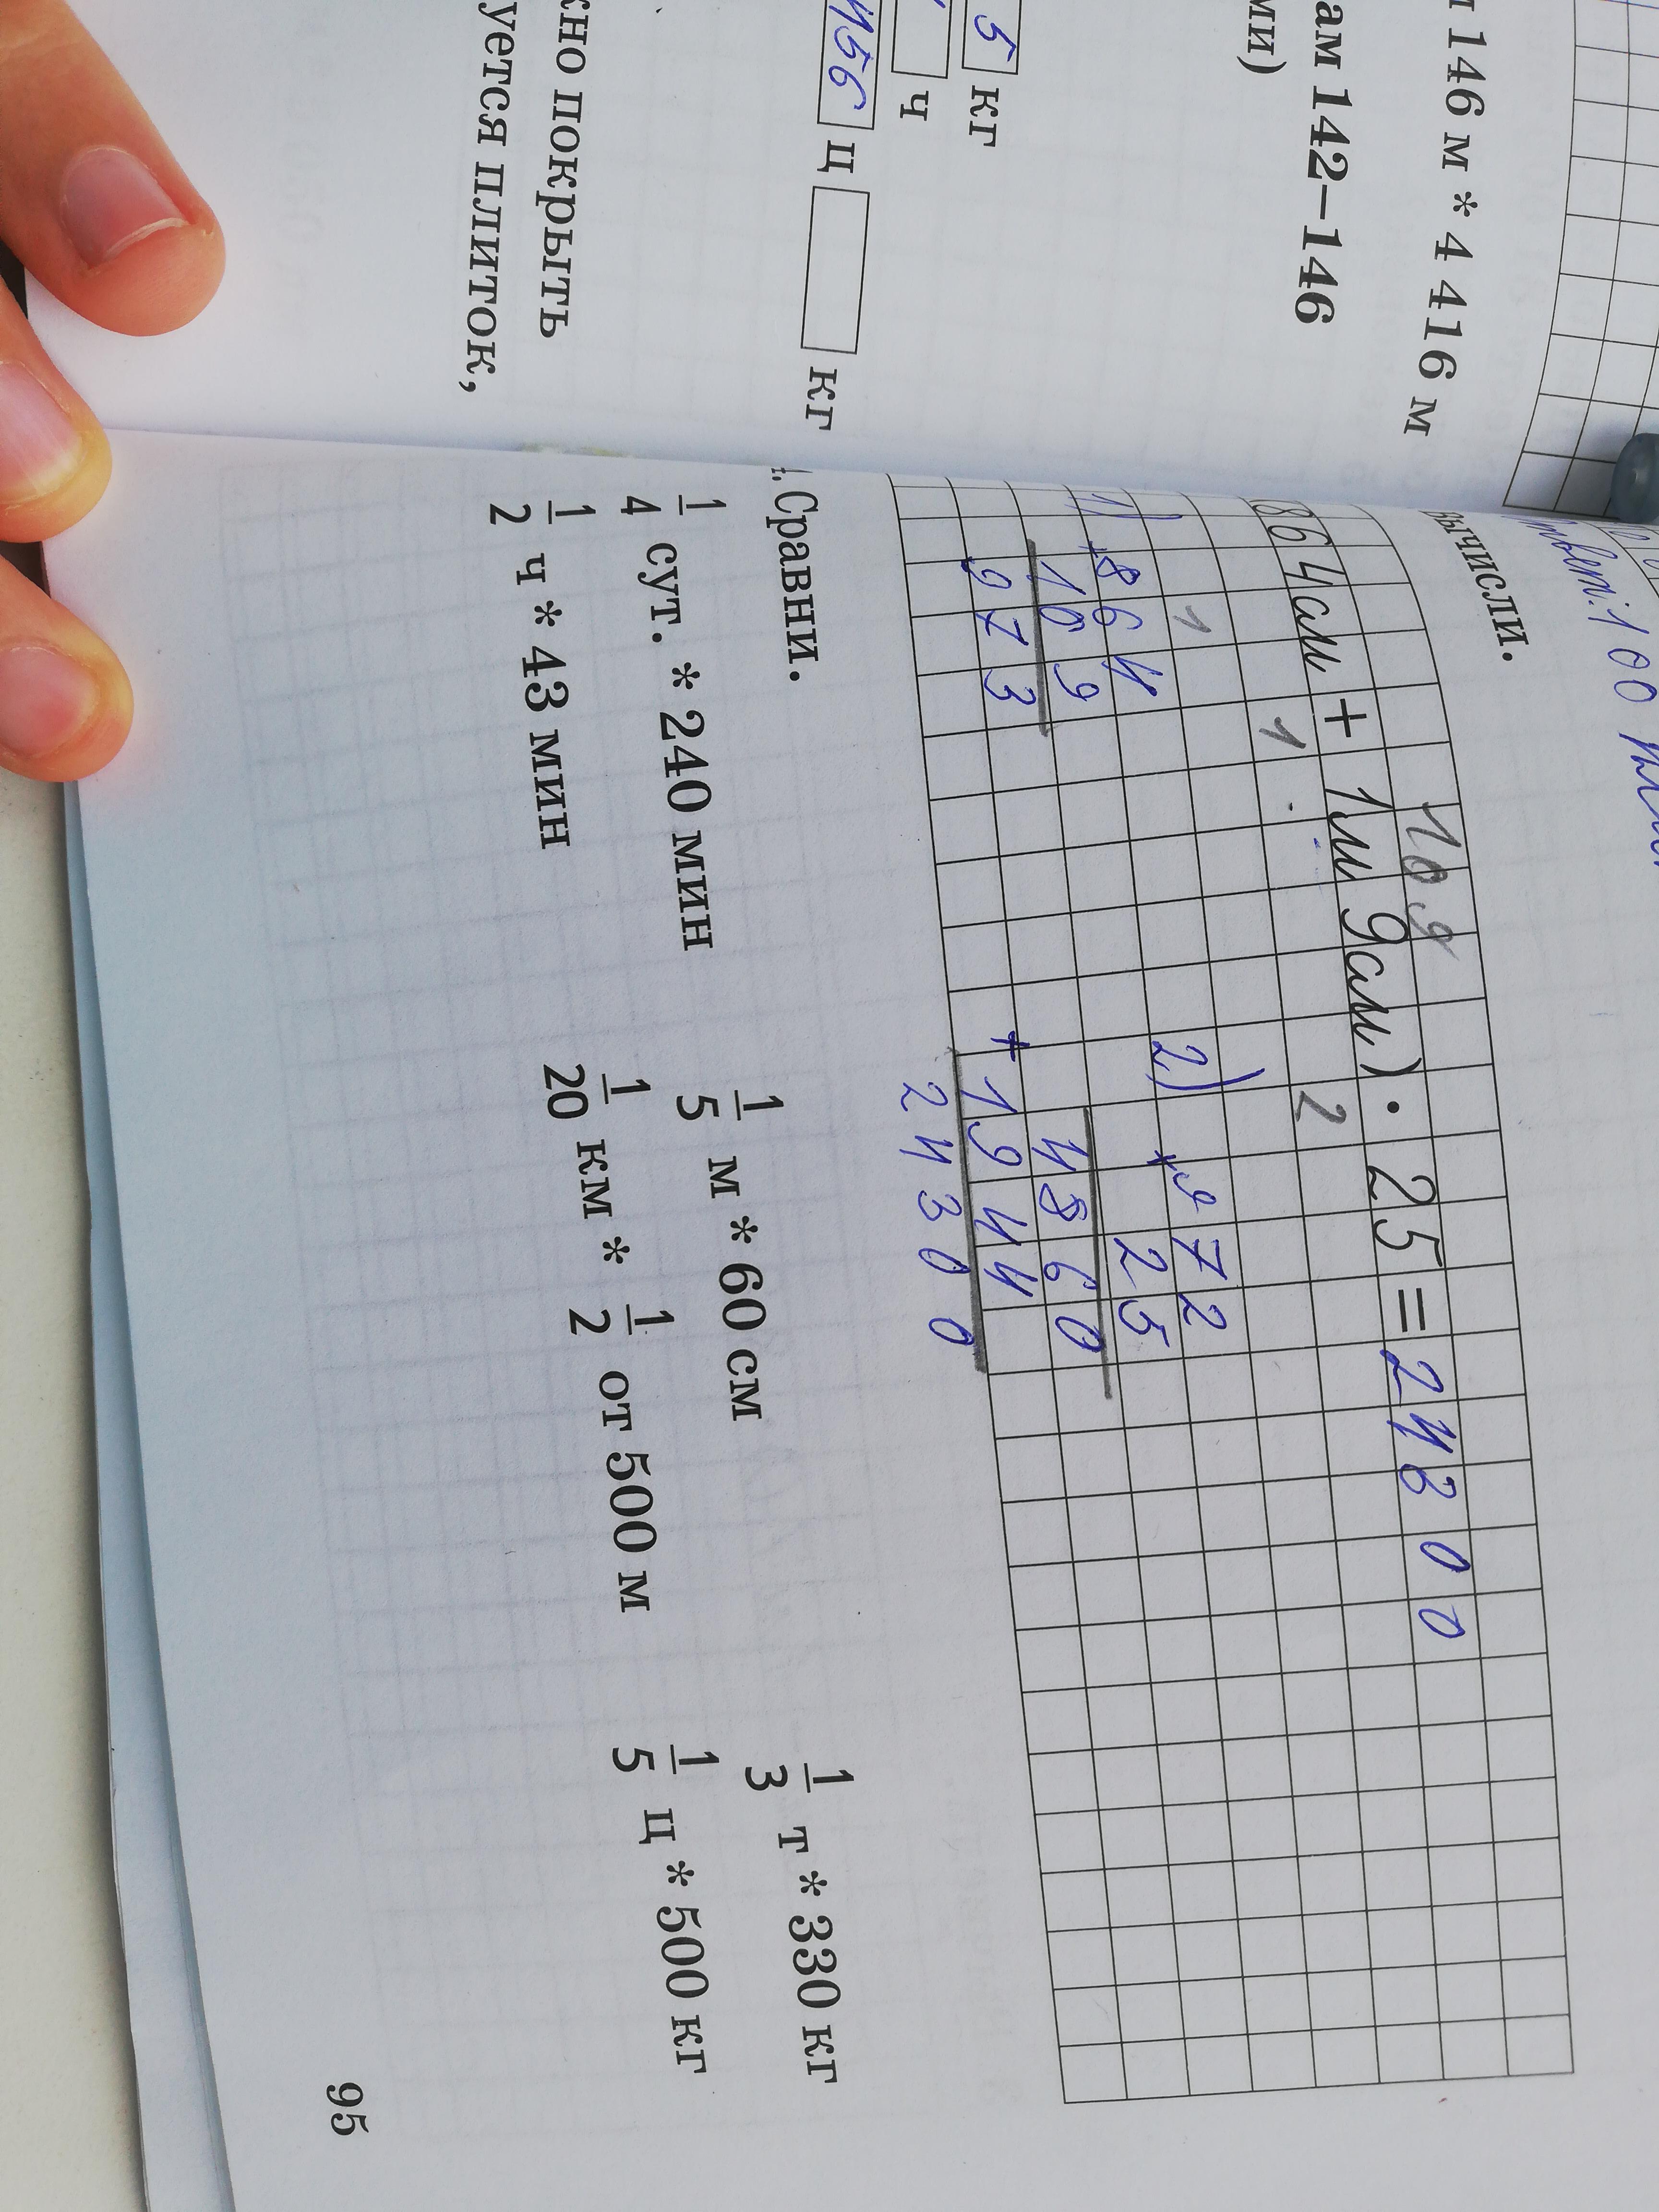 146 м * 4 416 м
ам 142–146
ми)
5 кг
ч
156 ц кг
жно покрыть
уется плиток,
Ответ: 100
вычисли.
109
864см + 1м 9см) · 25 = 24300
1 2
1
1) 864
+
109
973
2) 972
×
25
4860
+
1944
24300
Сравни.
1/4 сут. * 240 мин 1/5 м * 60 см 1/3 т * 330 кг
1/2 ч * 43 мин 1/20 км * 1/2 от 500 м 1/5 ц * 500 кг
95